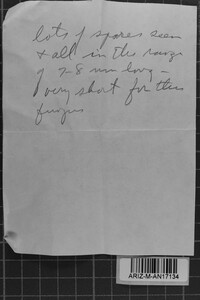 lots of spores seen
& all in the range
of 7-8 mm long –
very short for this
fungus
ARIZ-M-AN17134